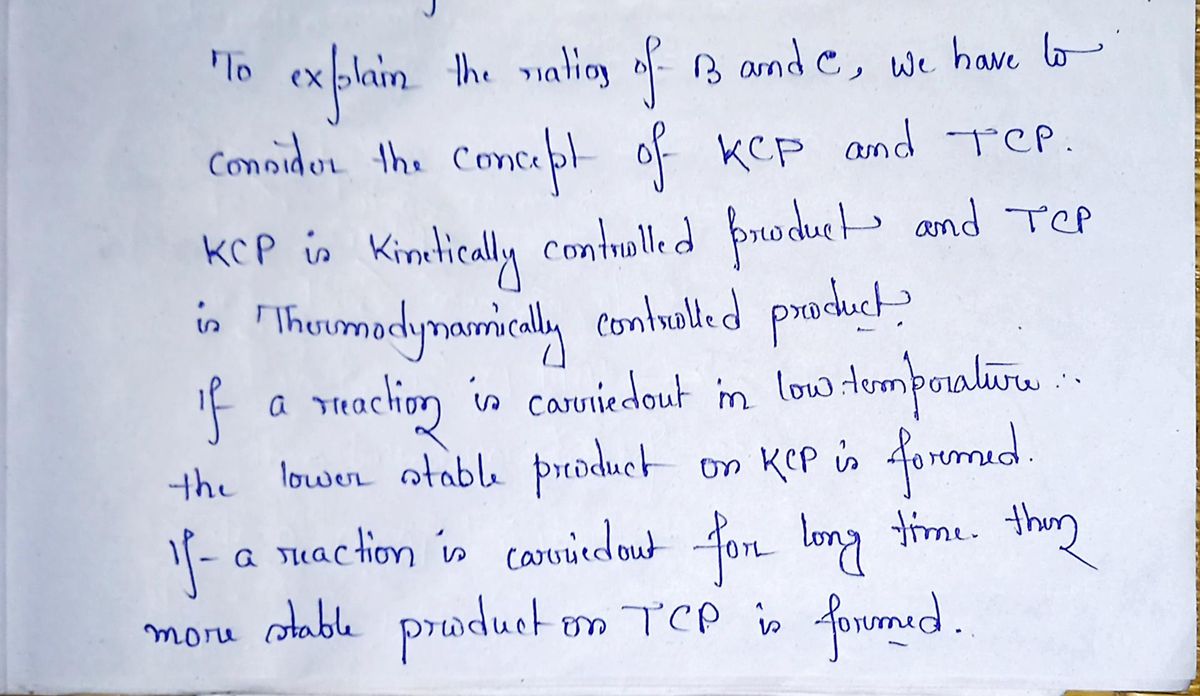 To explain the ratios of B and C, we have to
consider the concept of KCP and TCP.
KCP is Kinetically controlled product and TCP
is Thermodynamically controlled product.
If a reaction is carriedout in low temperature
the lower stable product or KCP is formed.
If a reaction is carriedout for long time. then
more stable product or TCP is formed.